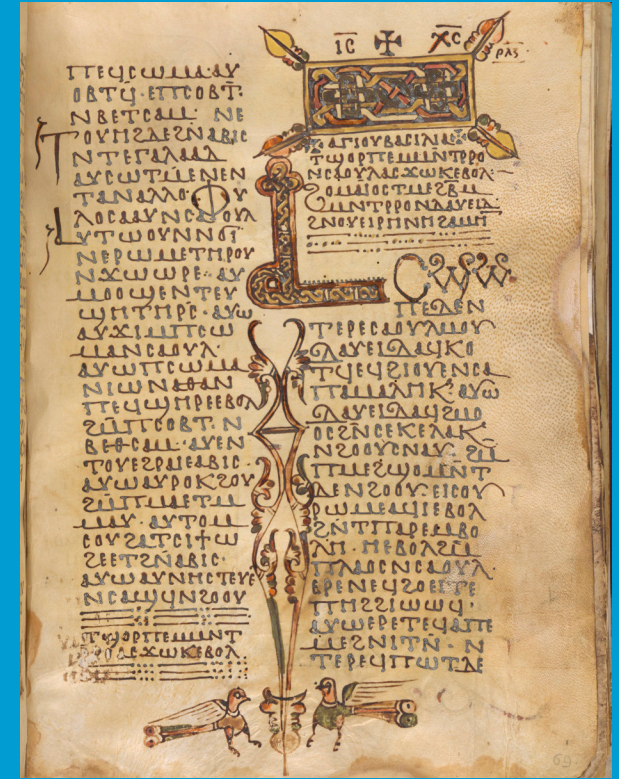 ⲡⲉϥⲥⲱⲙⲁ· ⲁⲩ
ⲟⲃⲧϥ· ⲉⲡⲥⲟⲃⲧ·
ⲛⲃⲉⲧⲥⲁⲙ· ⲛⲉ
ⲧⲟⲩⲏϩⲇⲉϩⲛⲁⲃⲓⲥ
ⲛⲧⲉⲅⲁⲗⲁⲁⲇ
ⲁⲩⲥⲱⲧⲙⲉⲛⲉⲛ
ⲧⲁⲛⲁⲗⲗⲟⲫⲩ
ⲗⲟⲥⲁⲁⲩⲛⲥⲁⲟⲩⲗ
ⲁⲩⲧⲱⲟⲩⲛⲛϭⲓ
ⲛⲉⲣⲱⲙⲉⲧⲏⲣⲟⲩ
ⲛϫⲱⲱⲣⲉ· ⲁⲩ
ⲙⲟⲟϣⲉⲛⲧⲉⲩ
ϣⲏⲧⲏⲣⲥ· ⲁⲩⲱ
ⲁⲩϫⲓⲙⲡⲥⲱ
ⲙⲁⲛⲥⲁⲟⲩⲗ·
ⲁⲩⲱⲡⲥⲱⲙⲁ
ⲛⲓⲱⲛⲁⲑⲁⲛ
ⲡⲉϥϣⲏⲣⲉⲉⲃⲟⲗ
ϩⲙⲡⲥⲟⲃⲧ· ⲛ
ⲃⲉⲑⲥⲁⲙ· ⲁⲩⲉⲛ
ⲧⲟⲩⲉϩⲣⲁⲓⲉⲁⲃⲓⲥ·
ⲁⲩⲱⲁⲩⲣⲟⲕϩⲟⲩ
ϩⲙⲡⲙⲁⲉⲧⲙ
ⲙⲁⲩ· ⲁⲩⲧⲟⲙ
ⲥⲟⲩϩⲁⲧⲥⲓϯⲱ
ϩⲉⲉⲧϩⲛⲁⲃⲓⲥ·
ⲁⲩⲱⲁⲩⲛⲏⲥⲧⲉⲩⲉ
ⲛⲥⲁϣϥⲛϩⲟⲟⲩ
ⲧϣⲟⲣⲡⲉⲙⲙⲛⲧ
ⲣⲣⲟⲁⲥϫⲱⲕⲉⲃⲟⲗ
ⲓ̅ⲥ̅ ✠ ⲭ̅ⲥ̅
ⲁⲅⲓⲟⲩⲃⲁⲥⲓⲗⲓⲁⲥ
ⲧϣⲟⲣⲡⲉⲙⲙⲛⲧⲣⲣⲟ
ⲛⲥⲁⲟⲩⲗⲁⲥϫⲱⲕⲉⲃⲟⲗ·
ϩⲟⲙⲁⲓⲟⲥⲧⲙⲉϩⲃ̅
ⲙⲙⲛⲧⲣⲣⲟⲛⲇⲁⲩⲉⲓⲇ
ϩⲛⲟⲩⲉⲓⲣⲏⲛⲏϩⲁⲙⲏⲛ
ⲥϣⲱ
ⲡⲉⲇⲉⲛ
ⲧⲉⲣⲉⲥⲁⲟⲩⲗⲙⲟⲩ
ⲇⲁⲩⲉⲓⲇⲁϥⲕⲟ
ⲧϥⲉϥϩⲓⲟⲩⲉⲛⲥⲁ
ⲡⲁⲙⲁⲗⲏⲕ· ⲁⲩⲱ
ⲇⲁⲩⲉⲓⲇⲁϥϩⲙⲟ
ⲟⲥϩⲛⲥⲉⲕⲉⲗⲁⲕ
ⲛϩⲟⲟⲩⲥⲛⲁⲩ· ϩⲙ
ⲡⲙⲉϩϣⲟⲙⲛⲧ
ⲇⲉⲛϩⲟⲟⲩ· ⲉⲓⲥⲟⲩ
ⲣⲱⲙⲉⲁϥⲓⲉⲃⲟⲗ
ϩⲛⲧⲡⲁⲣⲉⲙⲃⲟ
ⲗⲏ· ⲏⲉⲃⲟⲗϩⲙ
ⲡⲗⲁⲟⲥⲛⲥⲁⲟⲩⲗ·
ⲉⲣⲉⲛⲉϥϩⲟⲉⲓⲧⲉ
ⲡⲏϩϩⲓⲱⲱϥ·
ⲁⲩⲱⲉⲣⲉⲧⲉϥⲁⲡⲉ
ⲙⲉϩⲛⲓⲧⲛ· ⲛ
ⲧⲉⲣⲉϥⲡⲱⲧⲇⲉ
69